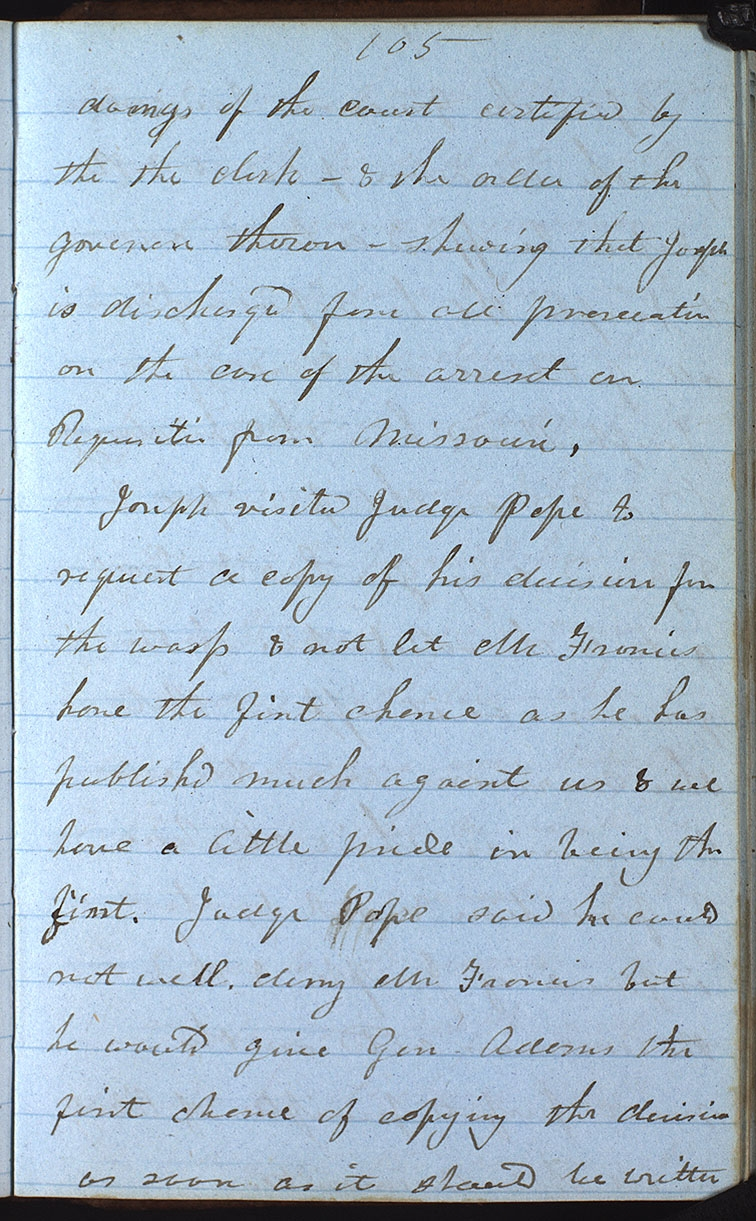 105
doings of the court certified by
the the clerk - & the order of the
governor theron - shewing that Joseph
is discharged from all prosecution
on the case of the arrest on
Requisitin from Missouri,
Joseph visited Judge Pope to
request a copy of his decision for
the wasp & not let Mr Francis
have the first chance as he has
publishd much against us & we
have a little pride in being the
first. Judge Pope said he could
not well. deny Mr Francis but
he would give Gen Adams the
first chance of copying the decision
as soon as it should be written